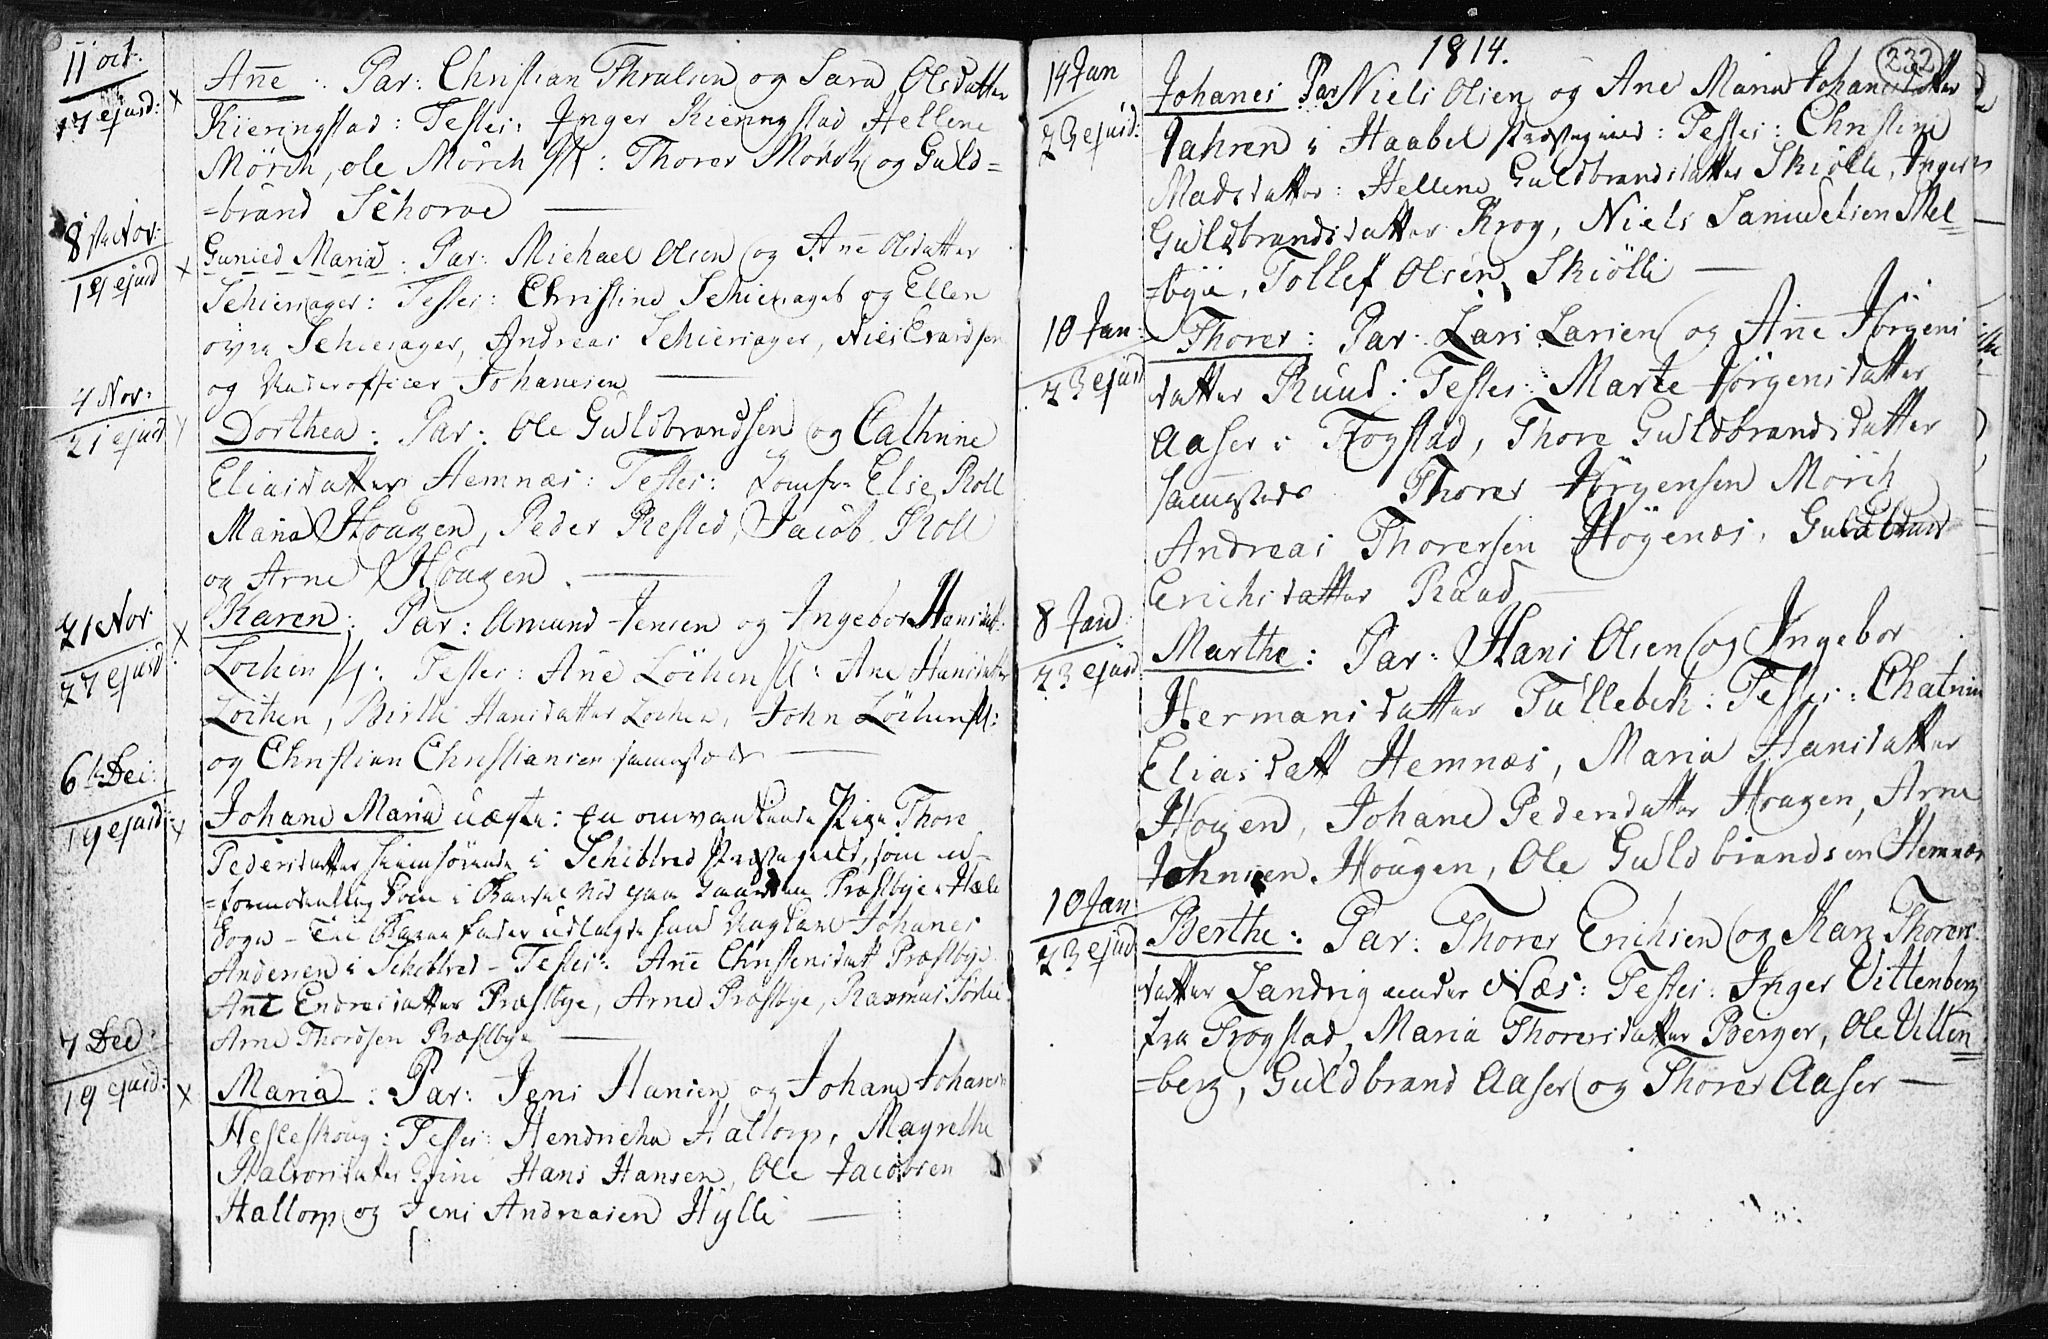 11 oct.
17 ejusd: x
Añe : Par: Christian Thralsen og Sara Olsdatter
Kieringstad : Testes: Inger Kieringstad Hellene
Mörch, ole Mörch st: Thorer Mörch og Guld=
=brand Schorve
8 Nov:
14 ejusd x
Gunied Maria : Par: Michael Olsen og Añe Olsdatter
Schiersager : Testes: Christine Schiersager og Ellen
övre Schiersager, Andreas Schiersager, Niels
og Underofficer Johanesen
4 Nov:
21 ejusd
Dorthea : Par: Ole Guldbrandsen og Cathrine
Eliasdatter Hemnæs : Testes: Jomfr. Else Roll
Maria Hougen, Peder Rested, Jacob Roll
og Arne Hougen.
21 Nov
27 ejusd: x
Karen : Par: Amund Jensen og Ingebor Hansdat:
Lochen : Testes: Añe Löchen : Ane Hansdatter
Lochen, Birthe Hansdatter Lochen, John Löchen
og Christian Christiansen samesteds
6te Dec:
19 ejusd: x
Johane Maria uægte: en omvankende Pige Thore
Pedersdatter hiemhörende i Schiblred Præstegield, som
formodentlig kom i Barsel Nöd paa Gaarden Præstbye i
Sogn - Til Barne fader udlagde hun Ungkarl Johanes
Andersen i Schiblred - Testes: Añe Christensdatt Præstbye
Añe Endresdatter Præstbye, Arne Præstbye, Rasmus Sörlie
Arne Thordsen Præstbye
7 Dec:
19 ejusd: x
Maria : Par: Jens Hansen og Johane Johanes:
Hesleskoug : Testes: Hendricha Hallorp, Magrethe
Halvorsdatter Grini Hans Hansen, Ole Jacobsen
Hallorp og Jens Andreasen Hylli
1814.
232
14 Jan
23 ejusd:
Johanes Par Niels Olsen og Ane Maria Johanesdatter
Jahren i Haabel Præstegield : Testes: Christine
Madsdatter : Hellene Guldbrandsdatter Skiölle, Inger
Guldbrandsdatter Krog, Niels Samuelsen Mel=
=bye, Tollef Olsen Skiölli
10 Jan:
23 ejusd
Thorer : Par: Lars Larsen og Añe Jörgens
datter Ruud : Testes: Marte Jörgensdatter
Aaser i Trögstad, Thore Guldbrandsdatter
sammesteds Thorer Jörgensen Mörch
Andreas Thorersen Högenæs, Guldbrand
Erichsdatter Ruud
8 Jan:
23 ejusd:
Marthe : Par: Hans Olsen og Ingebor
Hermansdatter Tullebek : Testes: Chatrine
Eliasdatt Hemnæs, Maria Hansdatter
Hougen, Johane Pedersdatter Hougen, Arne
Johnsen Hougen, Ole Guldbrandsen Hemnæs
10 Jan
23 ejusd
Berthe : Par: Thorer Erichsen og Kari Thorers
datter Sandvig under Næs : Testes: Inger Vittenberg
fra Trögstad, Maria Thorersdatter Berger, Ole Vitten=
=berg, Guldbrand Aaser og Thorer Aaser